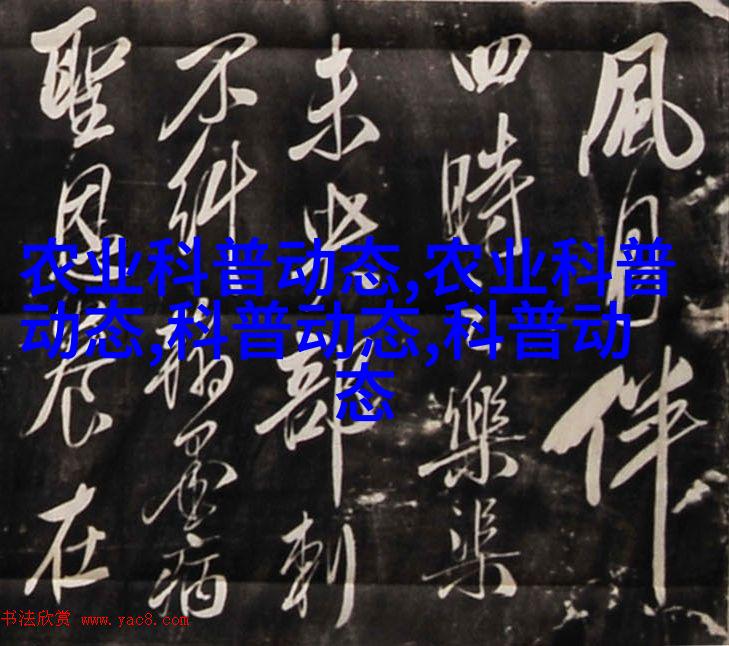 風月伴
四時樂渠
未部刺
不翰墨病
聖恩養在
农业科普动态,农业科普
动态,科普动态,科普动
态
书法欣赏 www.yac8.com